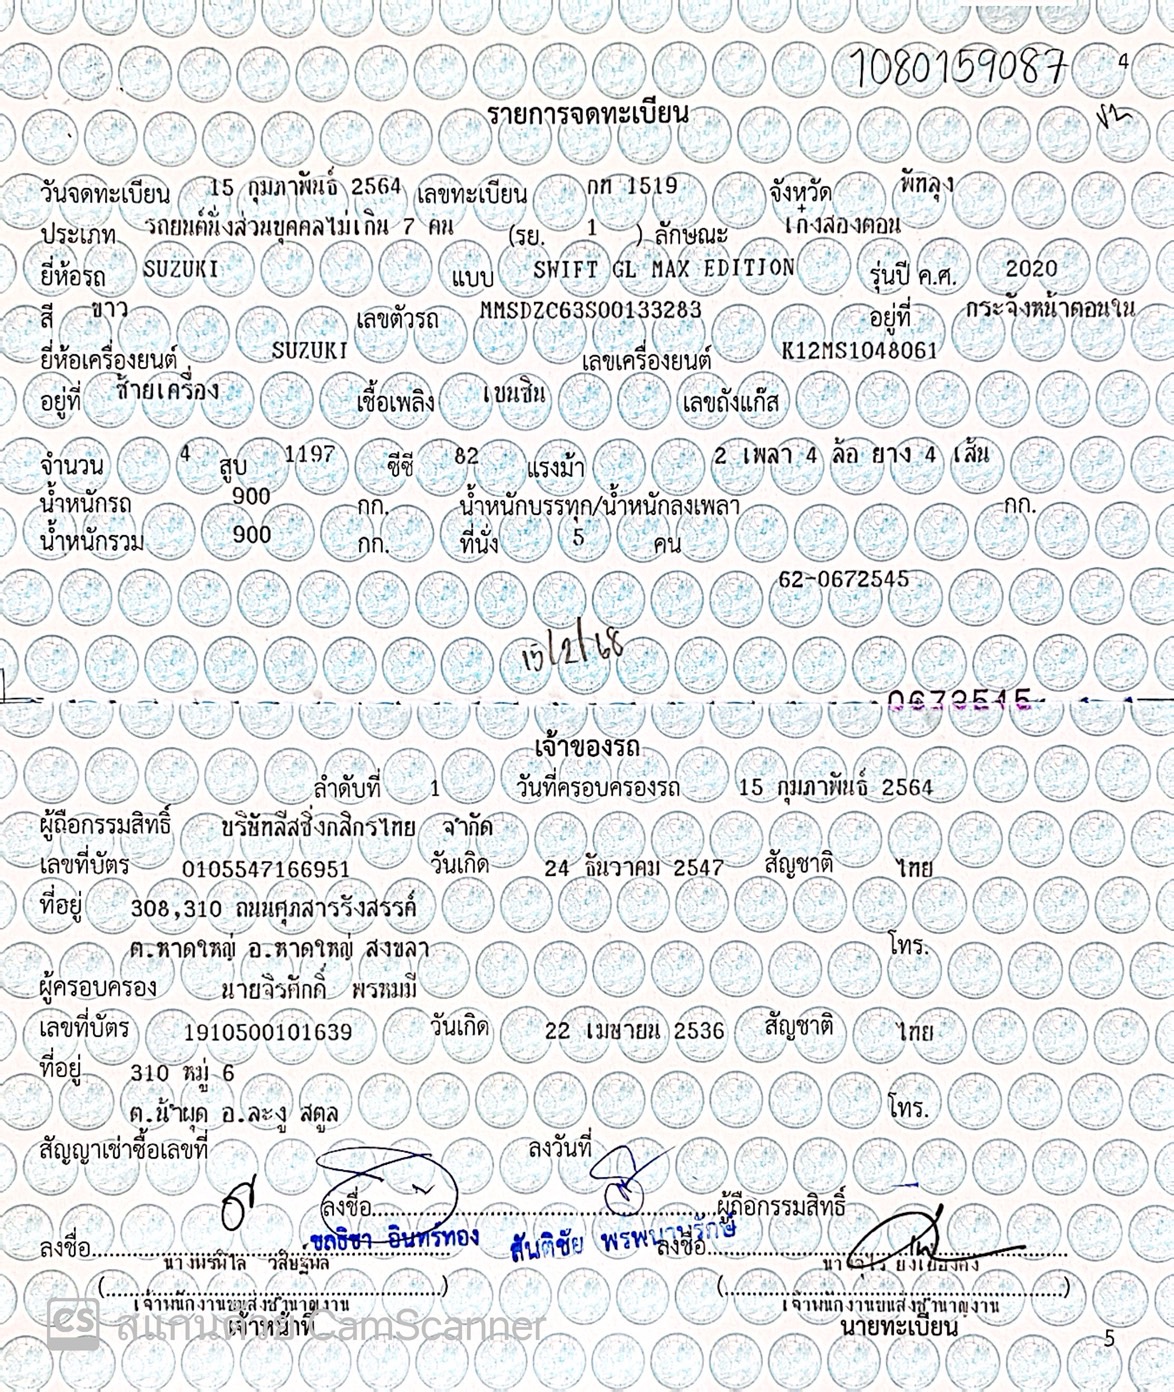 1080159087 4
รายการจดทะเบียน
วันจดทะเบียน 15 กุมภาพันธ์ 2564 เลขทะเบียน กท 1519 จังหวัด พัทลุง
ประเภท รถยนต์นั่งส่วนบุคคลไม่เกิน 7 คน (รย. 1 ) ลักษณะ เก๋งสองตอน
ยี่ห้อรถ SUZUKI แบบ SWIFT GL MAX EDITION รุ่นปี ค.ศ. 2020
สี ขาว เลขตัวรถ MMSDZC63S00133283 อยู่ที่ กระจังหน้าตอนใน
ยี่ห้อเครื่องยนต์ SUZUKI เลขเครื่องยนต์ K12MS1048061
อยู่ที่ ซ้ายเครื่อง เชื้อเพลิง เบนซิน เลขถังแก๊ส
จำนวน 4 สูบ 1197 ซีซี 82 แรงม้า 2 เพลา 4 ล้อ ยาง 4 เส้น
น้ำหนักรถ 900 กก. น้ำหนักบรรทุก/น้ำหนักลงเพลา กก.
น้ำหนักรวม 900 กก. ที่นั่ง 5 คน
62-0672545
15/2/68
0672545
เจ้าของรถ
ลำดับที่ 1 วันที่ครอบครองรถ 15 กุมภาพันธ์ 2564
ผู้ถือกรรมสิทธิ์ บริษัทลีสซิ่งกสิกรไทย จำกัด
เลขที่บัตร 0105547166951 วันเกิด 24 ธันวาคม 2547 สัญชาติ ไทย
ที่อยู่ 308,310 ถนนศุภสารรังสรรค์
ต.หาดใหญ่ อ.หาดใหญ่ สงขลา โทร.
ผู้ครอบครอง นายจิรศักดิ์ พรหมมี
เลขที่บัตร 1910500101639 วันเกิด 22 เมษายน 2536 สัญชาติ ไทย
ที่อยู่ 310 หมู่ 6
ต.น้ำผุด อ.ละงู สตูล โทร.
สัญญาเช่าซื้อเลขที่ ลงวันที่
ลงชื่อ ผู้ถือกรรมสิทธิ์
ชลธิชา อินทร์ทอง สันติชัย พรพนานุรักษ์
ลงชื่อ ลงชื่อ
เจ้าพนักงานขนส่งชำนาญงาน เจ้าพนักงานขนส่งชำนาญงาน
เจ้าหน้าที่ นายทะเบียน
CS สแกนด้วย CamScanner 5